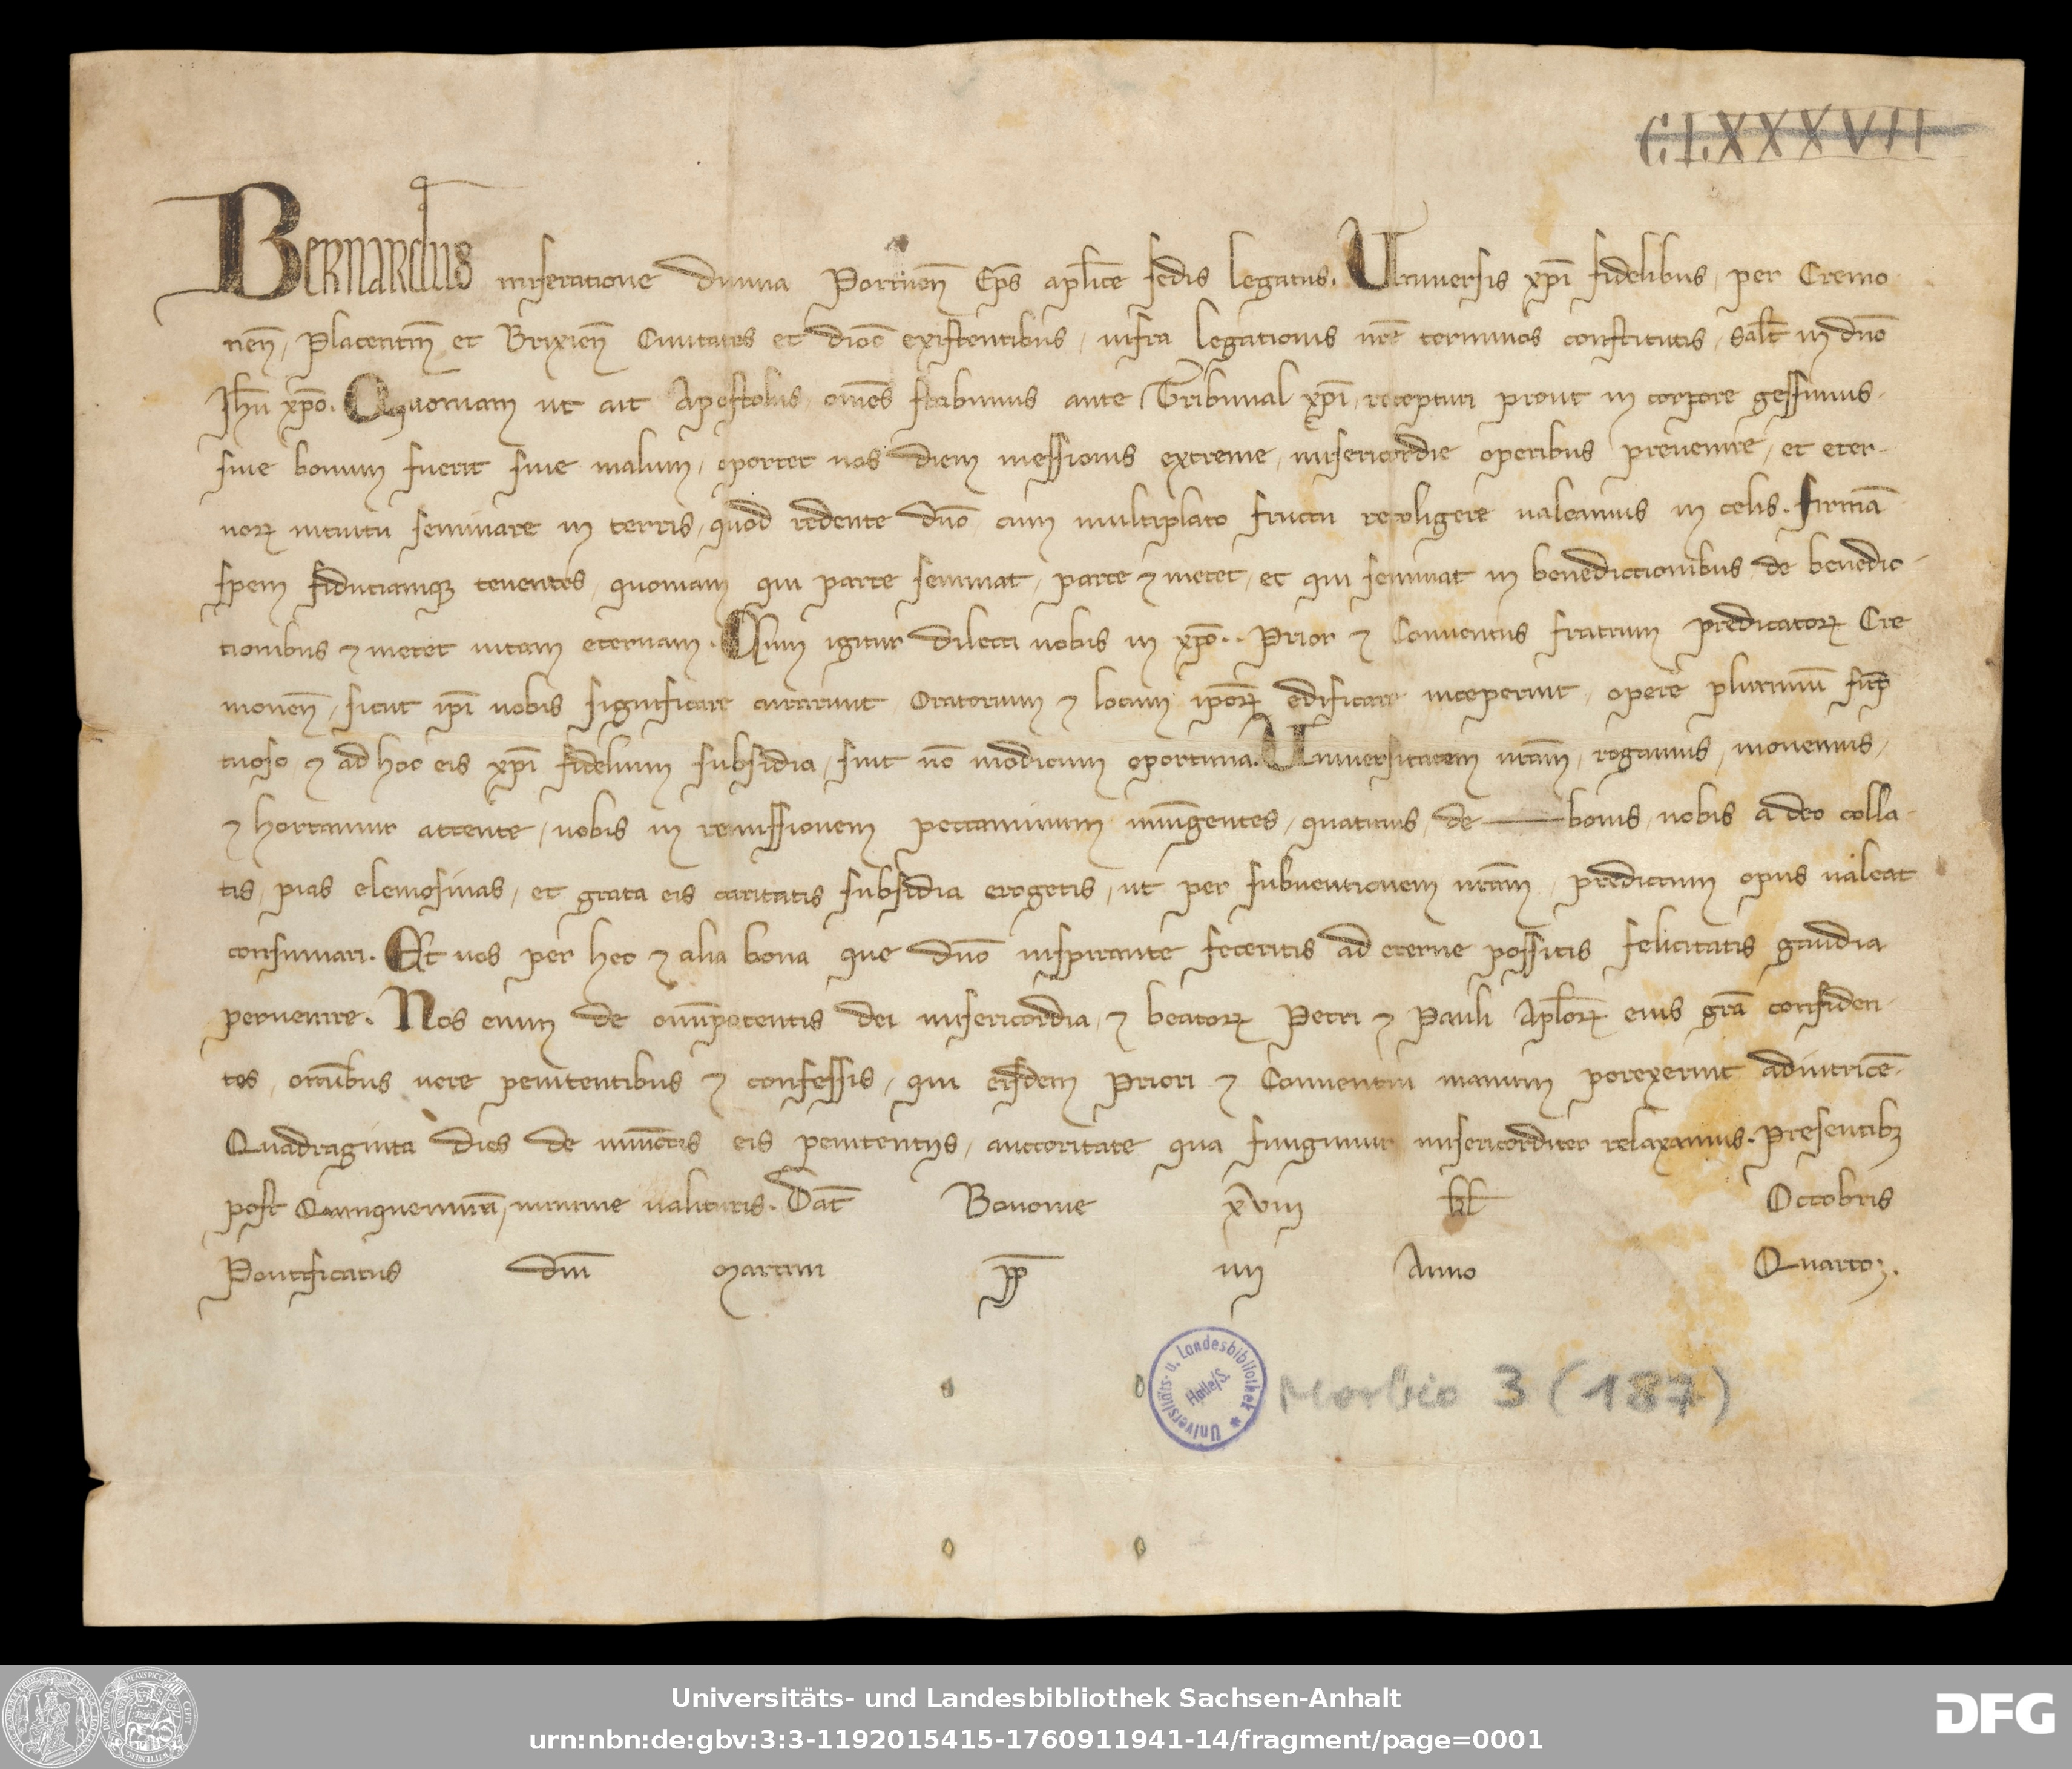 C.LXXXVII
Bernardus miseratione diuina Portuen̄ Ep̄s ap̄lice sedis legatus. Uniuersis xp̄i fidelibus, per Cremo
nen̄, Placentin̄ et Brixien̄ Ciuitates et dioc̄ existentibus, infra legationis nr̄e terminos constitutis, sal̄t in dn̄o
Jhū xp̄o. Quoniam ut ait Apostolus om̄es stabimus ante Tribunal xp̄i, recepturi prout in corpore gessimus,
siue bonum fuerit siue malum, oportet nos diem messionis extreme, misericordie operibus preuenire, et eter-
norꝝ intuitu seminare in terris, quod redente dn̄o cum multiplato fructu recoligere ualeamus in celis. firmā
spem fiduciamqꝫ tenentes, quoniam qui parce seminat, parce ⁊ metet, et qui seminat in benedictionibus de benedic-
tionibus ⁊ metet uitam eternam. Cum igitur dilecti nobis in xp̄o.. Prior ⁊ Conuentus fratrum predicatorꝝ Cre
monen̄, sicut ip̄i nobis significare curarunt Oratorium ⁊ locum ip̄orꝝ edificare inceperint, opere plurimū sūp
tuoso ⁊ ad hoc eis xp̄i fidelium subsidia, sint nō modicum oportuna. Uniuersitatem ur̄am, rogamus, monemus,
⁊ hortamur attente, uobis in remissionem peccaminum iniūgentes, quatinus, de bonis uobis a deo colla-
tis, pias elemosinas, et grata eis caritatis subsidia erogetis, ut per subuentionem ur̄am, predictum opus ualeat
consumari. Et uos per hec ⁊ alia bona que dn̄o inspirante feceritis ad eterne possitis felicitatis gaudia
peruenire. Nos enim de om̄ipotentis dei misericordia, ⁊ beatorꝝ Petri ⁊ Pauli Ap̄lorꝝ eius gr̄a confiden-
tes, om̄ibus uere penitentibus ⁊ confessis, qui eisdem Priori ⁊ Conuentui manum porexerint adiutricē.
Quadraginta dies de iniūctis eis penitentijs, auctoritate qua fungimur misericorditer relaxamus. Presentibꝫ
post Quinquenniū, minime ualituris. Dat̄ Bononie xviii kl Octobris
Pontificatus dn̄i Martini pp̄ iiij Anno Quarto.
Universitäts- u. Landesbibliothek Halle/S.
Morbio 3 (187)
Universitäts- und Landesbibliothek Sachsen-Anhalt
urn:nbn:de:gbv:3:3-1192015415-1760911941-14/fragment/page=0001
DFG